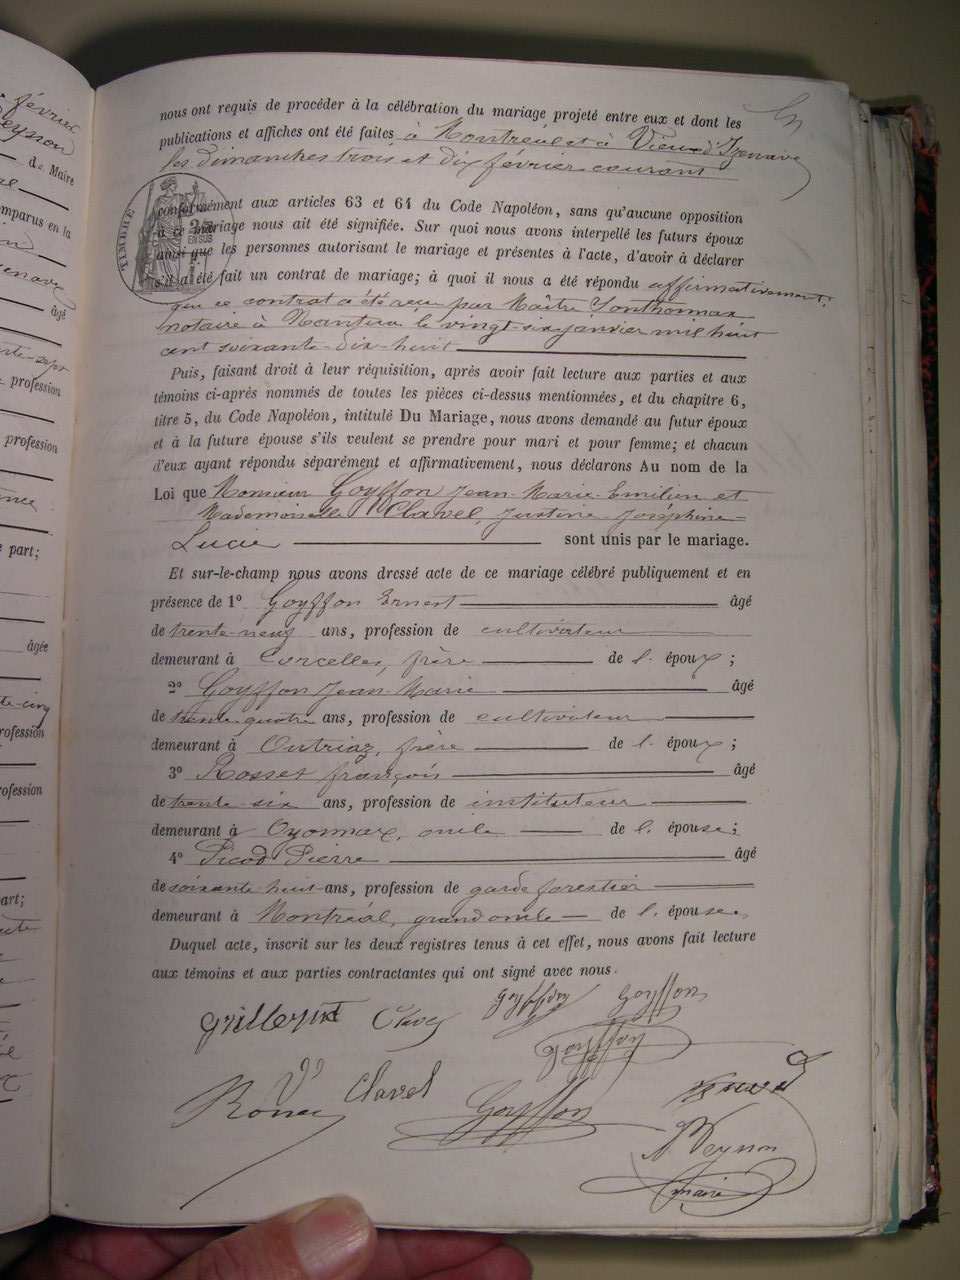 février
Peysson
de Maire
comparus en la
âgé
profession
profession
part;
âgée
profession
profession
part;
nous ont requis de procéder à la célébration du mariage projeté entre eux et dont les
publications et affiches ont été faites à Montréal et à Vieu d'Izenave
les dimanches trois et dix février courant
TIMBRE
EN SUS
conformément aux articles 63 et 64 du Code Napoléon, sans qu'aucune opposition
à ce mariage nous ait été signifiée. Sur quoi nous avons interpellé les futurs époux
ainsi que les personnes autorisant le mariage et présentes à l'acte, d'avoir à déclarer
s'il a été fait un contrat de mariage; à quoi il nous a été répondu affirmativement,
que ce contrat a été reçu par Maître Sonthonnax
notaire à Nantua le vingt six janvier mil huit
cent soixante-dix-huit
Puis, faisant droit à leur réquisition, après avoir fait lecture aux parties et aux
témoins ci-après nommés de toutes les pièces ci-dessus mentionnées, et du chapitre 6,
titre 5, du Code Napoléon, intitulé Du Mariage, nous avons demandé au futur époux
et à la future épouse s'ils veulent se prendre pour mari et pour femme; et chacun
d'eux ayant répondu séparément et affirmativement, nous déclarons Au nom de la
Loi que Monsieur Goyffon Jean-Marie-Emilien et
Mademoiselle Clavel, Justine-Joséphine
Lucie sont unis par le mariage.
Et sur-le-champ nous avons dressé acte de ce mariage célébré publiquement et en
présence de 1° Goyffon Ernest âgé
de trente-neuf ans, profession de cultivateur
demeurant à Corcelles, frère de l'époux;
2° Goyffon Jean-Marie âgé
de trente-quatre ans, profession de cultivateur
demeurant à Outriaz, frère de l'époux;
3° Rosset françois âgé
de trente-six ans, profession de instituteur
demeurant à Oyonnax, oncle de l'épouse;
4° Picod Pierre âgé
de soixante-huit ans, profession de garde forestier
demeurant à Montréal, grand oncle de l'épouse.
Duquel acte, inscrit sur les deux registres tenus à cet effet, nous avons fait lecture
aux témoins et aux parties contractantes qui ont signé avec nous.
Goyffon Goyffon
Goyffon
Clavel
Goyffon
Peysson
maire